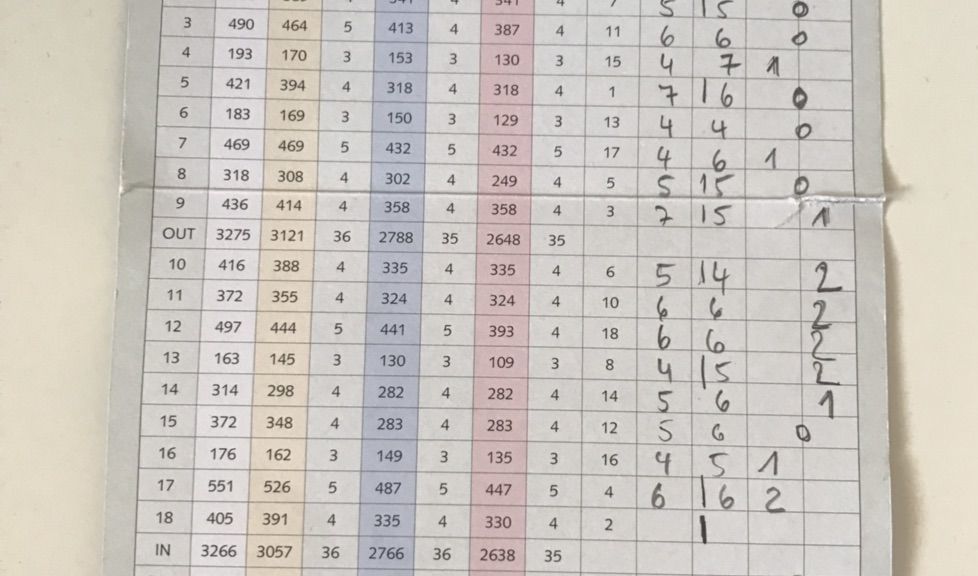 341 4 341 4 7 5 15 0
3 490 464 5 413 4 387 4 11 6 6 0
4 193 170 3 153 3 130 3 15 4 7 1
5 421 394 4 318 4 318 4 1 7 16 0
6 183 169 3 150 3 129 3 13 4 4 0
7 469 469 5 432 5 432 5 17 4 6 1
8 318 308 4 302 4 249 4 5 5 15 0
9 436 414 4 358 4 358 4 3 7 15 1
OUT 3275 3121 36 2788 35 2648 35
10 416 388 4 335 4 335 4 6 5 14 2
11 372 355 4 324 4 324 4 10 6 6 2
12 497 444 5 441 5 393 4 18 6 6 2
13 163 145 3 130 3 109 3 8 4 15 2
14 314 298 4 282 4 282 4 14 5 6 1
15 372 348 4 283 4 283 4 12 5 6 0
16 176 162 3 149 3 135 3 16 4 5 1
17 551 526 5 487 5 447 5 4 6 16 2
18 405 391 4 335 4 330 4 2 |
IN 3266 3057 36 2766 36 2638 35